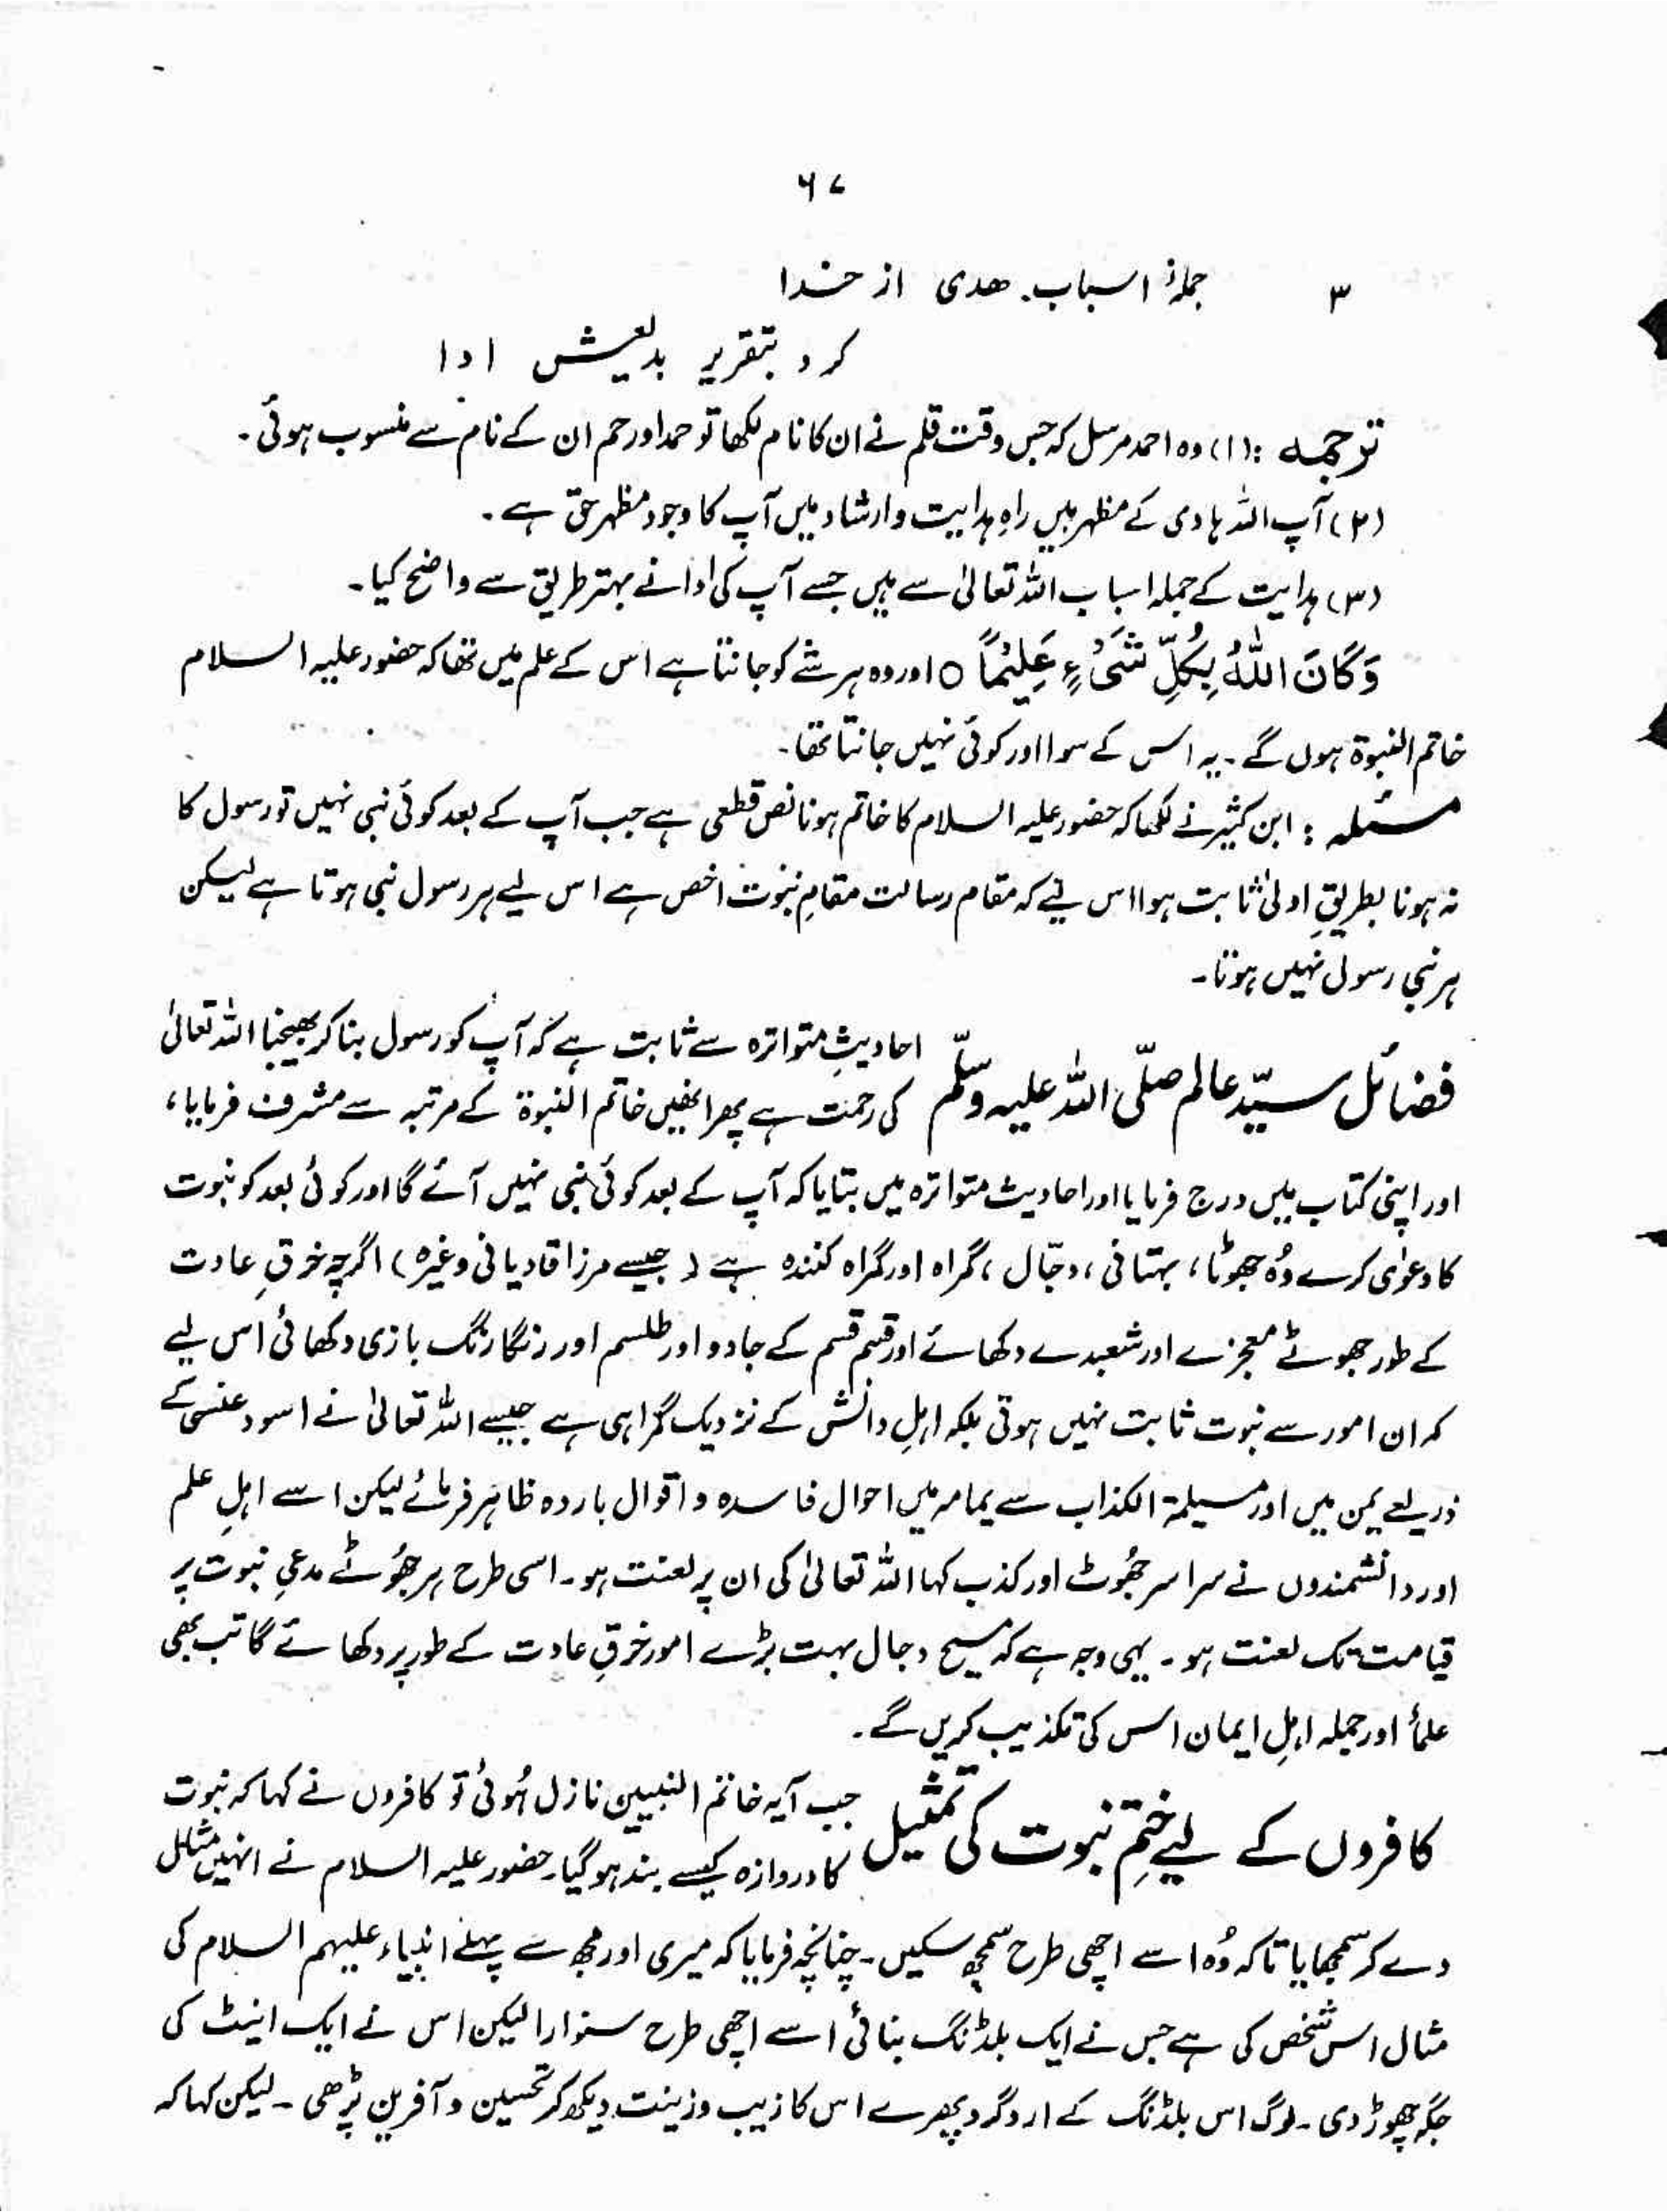 ۶۷
۳ جملۂ اسباب ھدی از خدا
کرد بتقریر بدیعش ادا
ترجمہ : (۱) وہ احمد مرسل کہ جس وقت قلم نے ان کا نام لکھا تو حمد اور حم ان کے نام سے منسوب ہوئی ۔
(۲) آپ اللہ ہادی کے مظہر ہیں راہِ ہدایت و ارشاد میں آپ کا وجود مظہر حق ہے ۔
(۳) ہدایت کے جملہ اسباب اللہ تعالیٰ سے ہیں جسے آپ کی ادا نے بہتر طریق سے واضح کیا ۔
وَكَانَ اللّٰهُ بِكُلِّ شَیْءٍ عَلِيْمًا ○ اور وہ ہر شے کو جانتا ہے اس کے علم میں تھا کہ حضور علیہ السلام
خاتم النبوۃ ہوں گے ۔ یہ اس کے سوا اور کوئی نہیں جانتا تھا ۔
مسئلہ : ابن کثیر نے لکھا کہ حضور علیہ السلام کا خاتم ہونا نص قطعی ہے جب آپ کے بعد کوئی نبی نہیں تو رسول کا
نہ ہونا بطریقِ اولیٰ ثابت ہوا اس لیے کہ مقام رسالت مقامِ نبوت اخص ہے اس لیے ہر رسول نبی ہوتا ہے لیکن
ہر نبی رسول نہیں ہوتا ۔
فضائل سیّدِ عالم صلّی اللہ علیہ وسلّم احادیثِ متواترہ سے ثابت ہے کہ آپ کو رسول بنا کر بھیجنا اللہ تعالیٰ
کی رحمت ہے پھر انھیں خاتم النبوۃ کے مرتبہ سے مشرف فرمایا ،
اور اپنی کتاب میں درج فرمایا اور احادیث متواترہ میں بتایا کہ آپ کے بعد کوئی نبی نہیں آئے گا اور کوئی بعد کو نبوت
کا دعوٰی کرے وُہ جھوٹا ، بہتانی ، دجّال ، گمراہ اور گمراہ کنندہ ہے ( جیسے مرزا قادیانی وغیرہ ) اگرچہ خرقِ عادت
کے طور جھوٹے معجزے اور شعبدے دکھائے اور قسم قسم کے جادو اور طلسم اور رنگا رنگ بازی دکھائی اس لیے
کہ ان امور سے نبوت ثابت نہیں ہوتی بلکہ اہلِ دانش کے نزدیک گمراہی ہے جیسے اللہ تعالیٰ نے اسود عنسی کے
ذریعے یمن میں اور مسیلمۃ الکذاب سے یمامہ میں احوال فاسدہ و اقوال باردہ ظاہر فرمائے لیکن اسے اہلِ علم
اور دانشمندوں نے سراسر جُھوٹ اور کذب کہا اللہ تعالیٰ کی ان پر لعنت ہو ۔ اسی طرح ہر جُھوٹے مدعیِ نبوت پر
قیامت تک لعنت ہو ۔ یہی وجہ ہے کہ مسیح دجال بہت بڑے امور خرقِ عادت کے طور پر دکھائے گا تب بھی
علمأ اور جملہ اہلِ ایمان اس کی تکذیب کریں گے ۔
کافروں کے لیے ختمِ نبوت کی تمثیل جب آیہ خاتم النبیین نازل ہُوئی تو کافروں نے کہا کہ نبوت
کا دروازہ کیسے بند ہو گیا ۔ حضور علیہ السلام نے انہیں مثال
دے کر سمجھایا تاکہ وُہ اسے اچھی طرح سمجھ سکیں ۔ چنانچہ فرمایا کہ میری اور مجھ سے پہلے انبیاء علیہم السلام کی
مثال اس شخص کی ہے جس نے ایک بلڈنگ بنائی اسے اچھی طرح سنوارا لیکن اس نے ایک اینٹ کی
جگہ چھوڑ دی ۔ لوگ اس بلڈنگ کے اردگرد پھرے اس کا زیب و زینت دیکھ کر تحسین و آفرین پڑھی ۔ لیکن کہا کہ